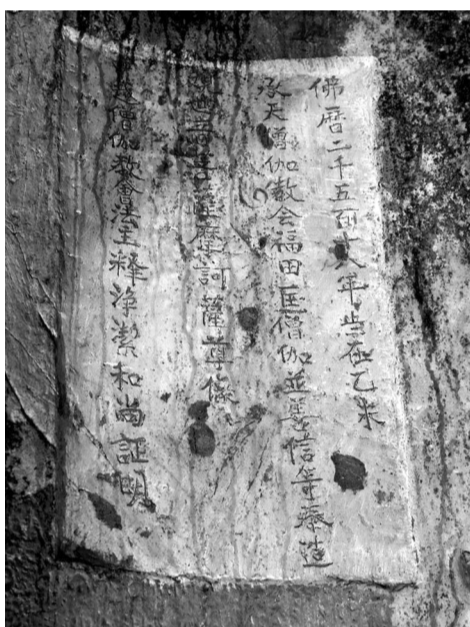 佛暦二千五百十八年歲在乙未
承天僧伽教会福田匡僧伽並善信等奉造
世音菩薩摩訶薩尊像
僧伽教會法主釋淨潔和尚証明